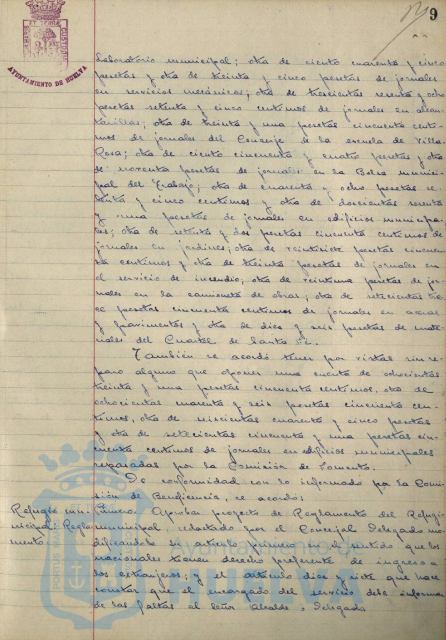 9
AYUNTAMIENTO DE HUELVA
Laboratorio municipal; otra de ciento cuarenta y cinco
pesetas y otra de treinta y cinco pesetas de jornales
en servicios mecánicos; otra de trescientas sesenta y ocho
pesetas setenta y cinco centimos de jornales en alcan-
tarillas; otra de treinta y una pesetas cincuenta centi-
mos de jornales del Conserje de la escuela de Villa-
Rosa; otra de ciento cincuenta y cuatro pesetas y otra
de noventa pesetas de jornales en la Bolsa munici-
pal del Trabajo; otra de cuarenta y ocho pesetas se-
tenta y cinco centimos y otra de doscientas sesenta
y una pesetas de jornales en edificios municipa-
les; otra de setenta y dos pesetas cincuenta centimos de
jornales en jardines; otra de veintisiete pesetas cincuen-
ta centimos y otra de treinta pesetas de jornales en
el servicio de incendio; otra de veintiuna pesetas de jor-
nales en la camioneta de obras; otra de setecientas tre-
ce pesetas cincuenta centimos de jornales en aceras
y pavimentos y otra de diez y seis pesetas de mate-
riales del Cuartel de Santa Fé.
También se acordó tener por vistas sin re-
paro alguno que oponer una cuenta de ochocientas
treinta y una pesetas cincuenta centimos, otra de
ochocientas noventa y seis pesetas cincuenta cen-
timos, otra de seiscientas cuarenta y cinco pesetas
y otra de setecientas cincuenta y una pesetas cin-
cuenta centimos de jornales en edificios municipales
reparadas por la Comisión de Fomento.
De conformidad con lo informado por la Comi-
sión de Beneficencia, se acordó:
Refugio muni-
cipal: Regla-
mento
Primero: Aprobar proyecto de Reglamento del Refugio
municipal, redactado por el Concejal Delegado mo-
dificandose su artículo primero en el sentido que los
nacionales tienen derecho preferente de ingreso a
los extranjeros; y el artículo diez y siete que hace
constar que el encargado del servicio debe informar
de las faltas al Señor Alcalde o Delegado